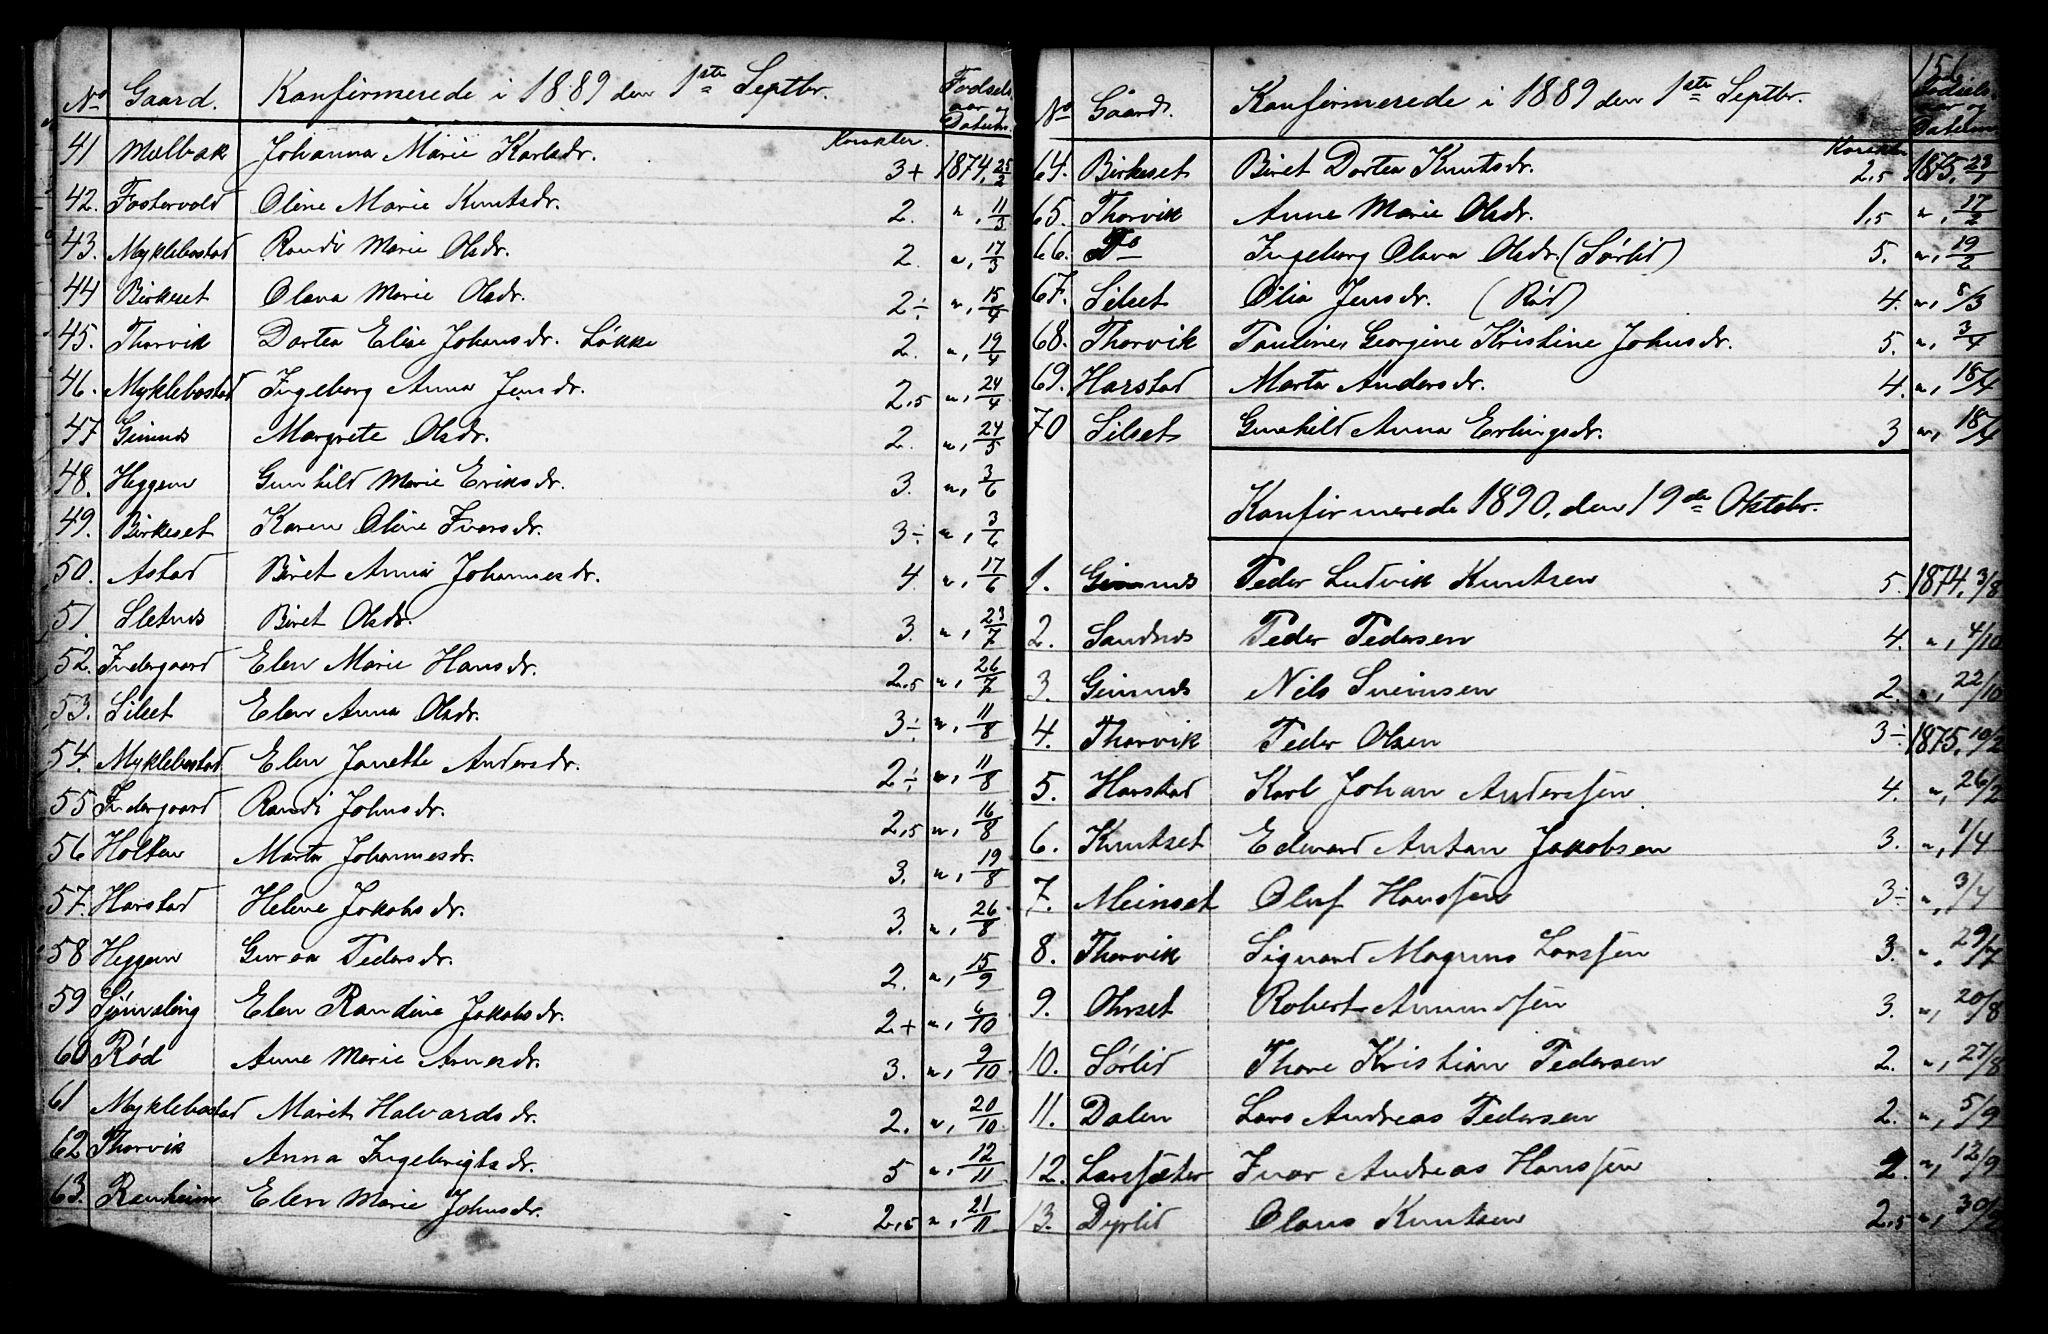 No Gaard. Konfirmerede i 1889 den 1ste Septbr. Fødsels aar og Datum.
Karakter.
41 Melbak Johanna Marie Karlsdr. 3+ 1874, 25/2
42. Fostervold Oline Marie Knutsdr. 2. ", 11/3
43. Myklebostad Randi Marie Olsdr. 2. ", 17/3
44 Birkeset Olava Marie Olsdr. 2÷ ", 15/4
45. Thorvik Dortea Elise Johansdr. Løkke 2. ", 19/4
46. Myklebostad Ingeborg Anna Jensdr. 2,5 ", 24/4
47 Gimnes Margrete Olsdr. 2. ", 24/5
48. Heggem Gunhild Marie Eriksdr. 3. ", 3/6
49. Birkeset Karen Oline Ivarsdr. 3÷ ", 3/6
50. Astad Beret Anna Johannesdr. 4. ", 17/6
51. Sletnes Beret Olsdr. 3. ", 23/7
52. Indergaard Elen Marie Hansdr. 2,5 ", 26/7
53. Silset Elen Anna Olsdr. 3÷ ", 11/8
54. Myklebostad Elen Janette Andersdr. 2÷ ", 11/8
55 Indergaard Randi Johnsdr. 2,5 ", 16/8
56 Holten Marta Johannesdr. 3. ", 19/8
57. Harstad Helene Jakobsdr. 3. ", 26/8
58 Heggem Guroa Pedersdr. 2. ", 15/9
59 Elen Randine Jakobsdr. 2+ ", 6/10
60 Rød Anne Marie Arnesdr. 3. ", 9/10
61 Myklebostad Marit Halvardsdr. 2. ", 20/10
62 Thorvik Anna Ingebrigtsdr. 5 ", 12/11
63. Ranheim Elen Marie Johnsdr. 2,5 ", 21/11
151
No Gaard. Konfirmerede i 1889 den 1ste Septbr. Fødsels aar og Datum
Karakter
64. Birkeset Beret Dortea Knutsdr. 2,5 1875, 23/1
65. Thorvik Anne Marie Olsdr. 1,5 ", 17/2
66. Do Ingeborg Olava Olsdr. (Sørlid) 5. ", 19/2
67. Silset Olia Jensdr. (Rød) 4. ", 8/3
68. Thorvik Pauline Georgine Kristine Johnsdr. 5. ", 3/4
69. Harstad Marta Andersdr. 4. ", 18/4
70 Silset Gunhild Anna Erlingsdr. 3 ", 18/4
Konfirmerede 1890, den 19de Oktobr.
1. Gimnes Peder Ludvik Knutsen 5. 1874, 3/8
2. Sandnes Peder Pedersen 4. ", 4/10
3. Gimnes Nils Sveinsen 2. ", 22/10
4. Thorvik Peder Olsen 3÷ 1875, 10/2
5. Harstad Karl Johan Anderssen 4. ", 26/2
6. Knutset Edvard Antan Jakobsen 3. ", 1/4
7. Meinset Oluf Hanssen 3÷ ", 3/4
8. Thorvik Sigvard Magnus Larssen 3. ", 29/7
9. Ohrset Robert Amundsen 3. ", 20/8
10. Sørlid Thore Kristian Pedersen 2. ", 27/8
11. Dalen Lars Andreas Pedersen 2. ", 5/9
12. Larssæter Ivar Andreas Hanssen 2. ", 12/9
13. Dyrlid Olaus Knutsen 2,5 ",